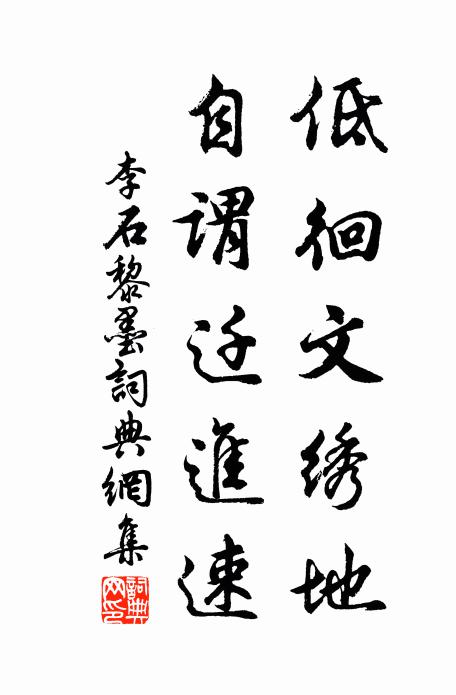 低徊文绣地
自谓迁進速
李石黎墨詞典網集
詞典网印